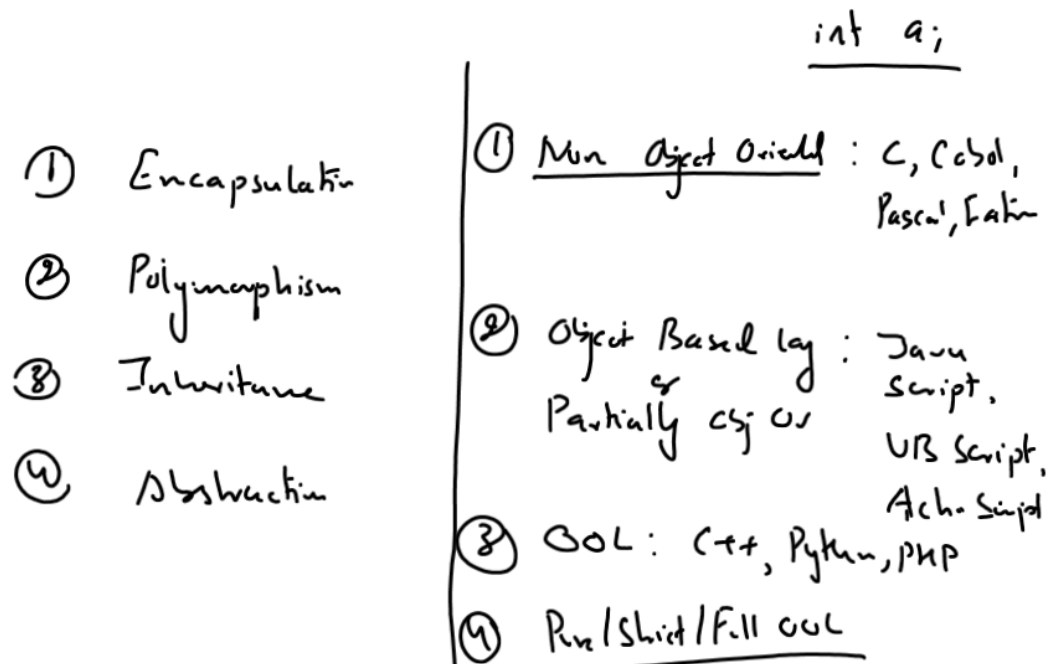 ① Encapsulation
② Polymorphism
③ Inheritance
④ Abstraction
int a;
① Non Object Oriented : C, Cobol,
Pascal,
② Object Based lag : Java
or Script,
Partially obj Or
VB Script,
Script
③ OOL : C++, Python, PHP
④ Pure/Strict/Full OOL